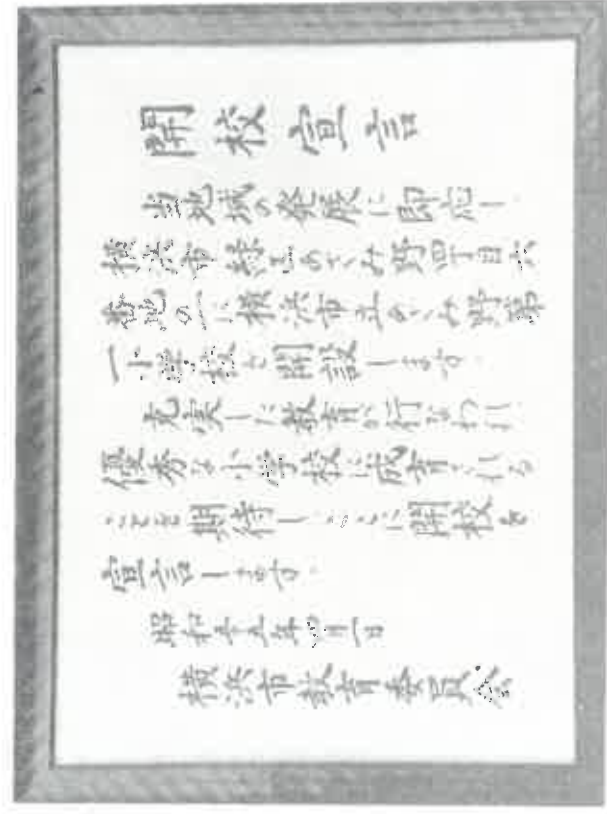 開校宣言
当地域の発展に即応し
横浜市緑区あざみ野四丁目六
番地の一に横浜市立あざみ野第
一小学校を開設します。
充実した教育が行なわれ
優秀な小学校に成育される
ことを期待しここに開校を
宣言します。
昭和 年四月一日
横浜市教育委員会